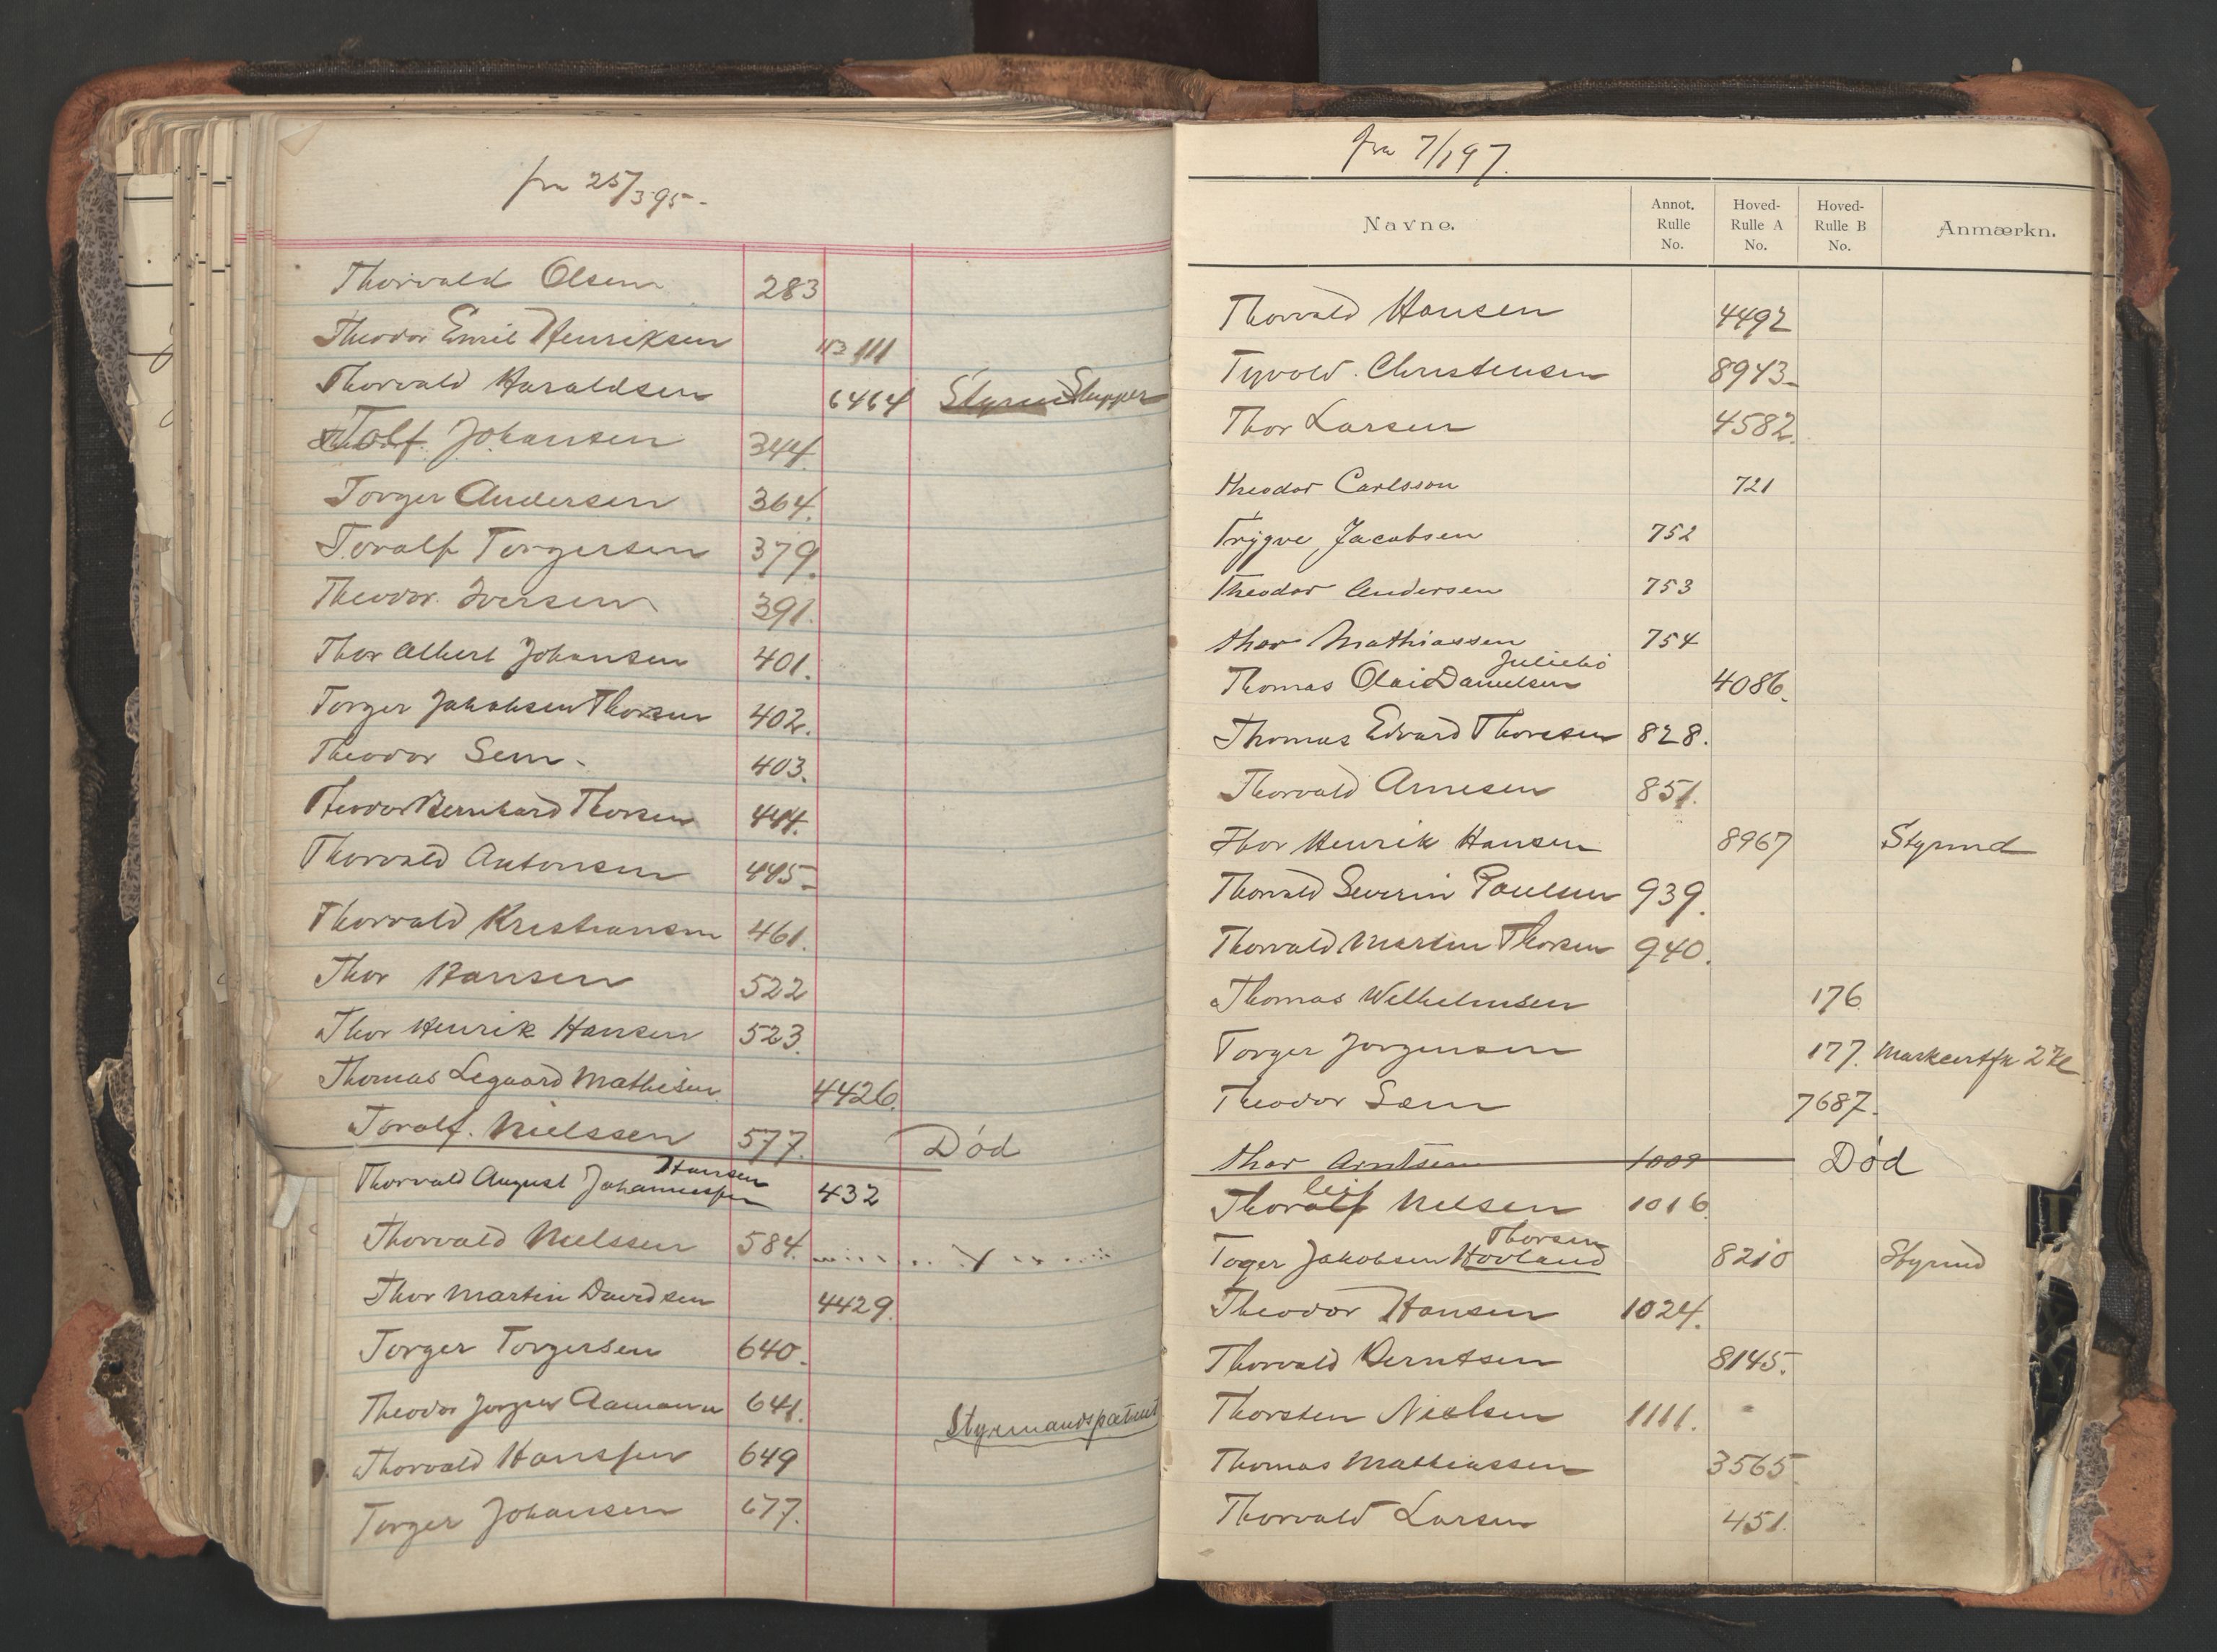 fra 25/3 95-
Thorvald Olsen 283
Theodor Emil Henriksen 111
Thorvald Haraldsen 6464 Styrm Skipper
Tolf Johansen 344.
Torger Andersen 364.
Toralf Torgersen 379.
Theodor Iversen 391.
Thor Albert Johansen 401.
Torger Jakobsen Thorsen 402.
Theodor Sem - 403.
Theodor Bernhard Thorsen 444.
Thorvald Antonsen 445-
Thorvald Kristiansen 461.
Thor Hansen 522
Thor Henrik Hansen 523.
Thomas Legaard Mathisen 4426.
Toralf. Nielssen 577. Död
Hansen
Thorvald August Johannessen 432
Thorvald Nielssen 584.
Thor Martin Davidsen 4429.
Torger Torgersen 640.
Theodor Jörgen Aamann 641. Styrmandspatent
Thorvald Hanssen 649
Torger Johansen 677.
fra 7/1 97.
Navne. Annot. Rulle No. Hoved-Rulle A No. Hoved-Rulle B No. Anmærkn.
Thorvald Hansen 4492
Tyvold. Christensen 8943-
Thor Larsen 4582.
Theodor Carlsson 721
Trygve Jacobsen 752
Theodor Andersen 753
Thor Mathiassen 754
Juliebö
Thomas Olai Danielsen 4086.
Thomas Edvard Thoresen 828.
Thorvald Arnesen 851.
Thor Henrik Hansen 8967 Styrmd
Thorvald Severin Paulsen 939.
Thorvald Martin Thorsen 940.
Thomas Wilhelmsen 176
Torger Jorgensen 177. Maskcertfk 2 Kl
Theodor Sem 7687.
Thor Arntsen 1009 Död
leif
Thoralf Nilsen 1016
Thorsen
Toger Jakobsen Hovland 8210 Styrmd
Theodor Hansen 1024.
Thorvald Berntsen 8145.
Thorsten Nielsen 1111.
Thomas Mathiassen 3565
Thorvald Larsen 451.